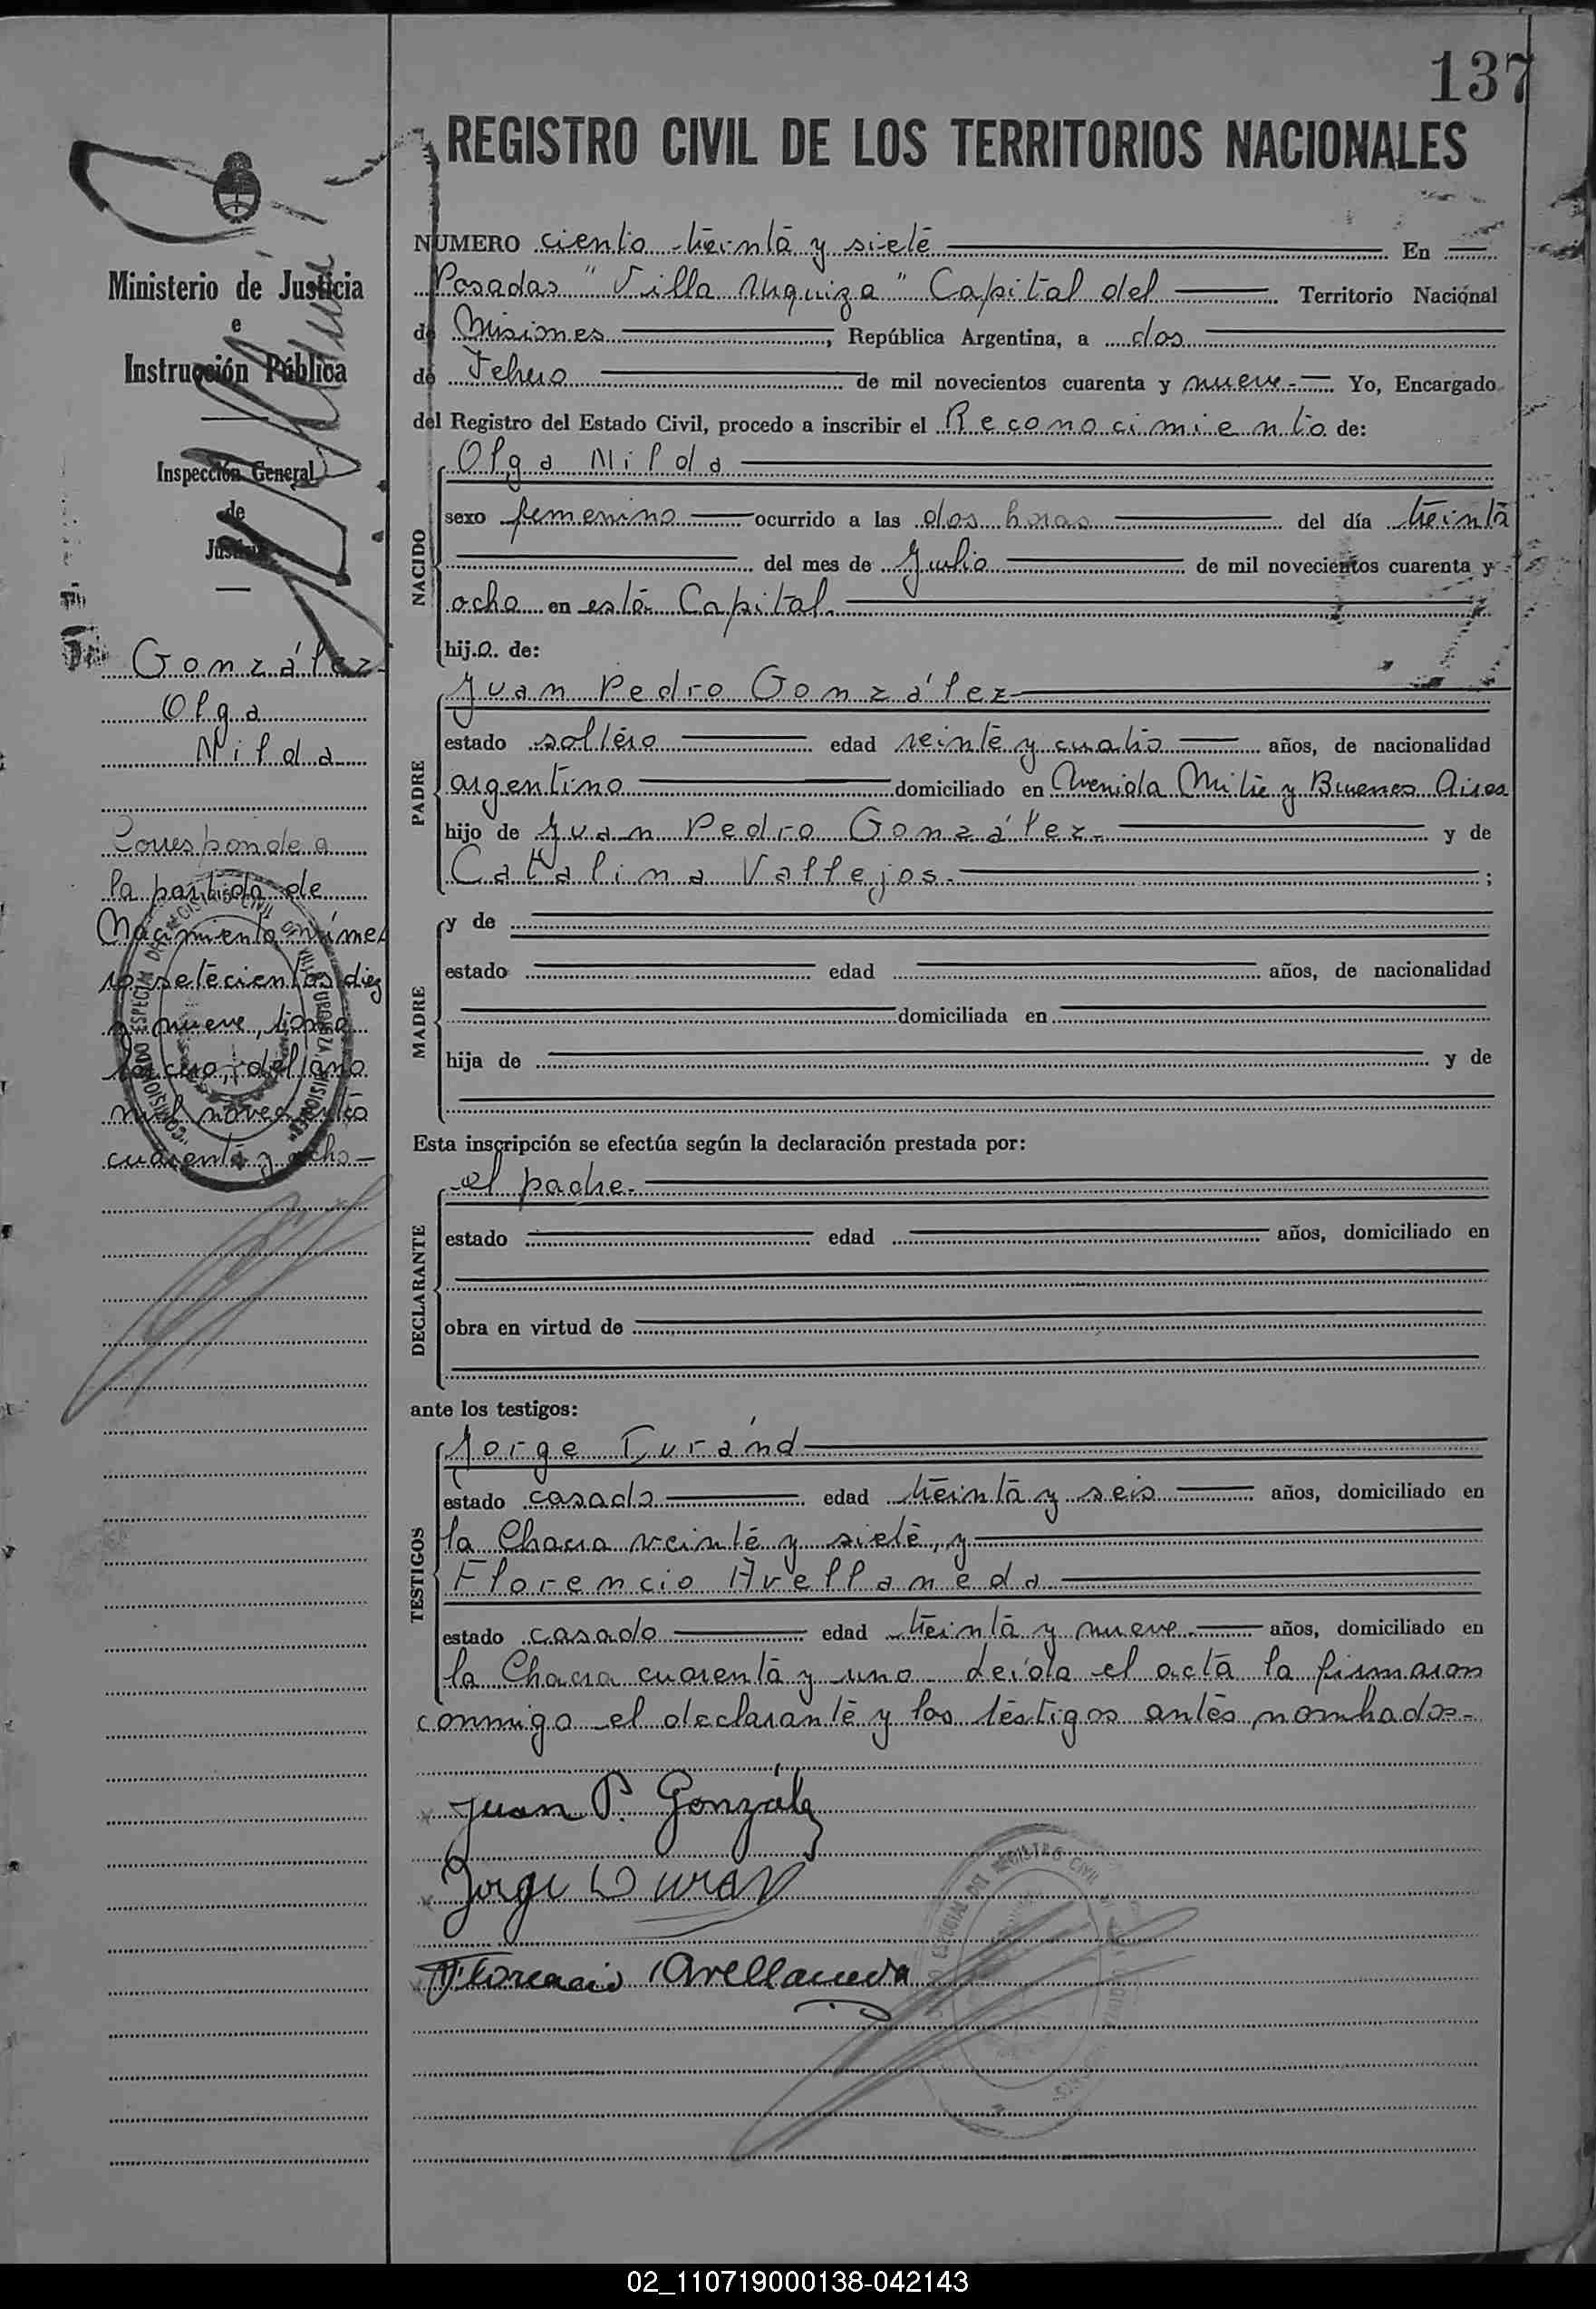 137
REGISTRO CIVIL DE LOS TERRITORIOS NACIONALES
Ministerio de Justicia
e
Instrucción Pública
Inspección General
de
Justicia
González
Olga
Nilda
Corresponde a
la partida de
Nacimiento núme
ro setecientos diez
y nueve, tomo
del año
mil novecientos
cuarenta y ocho
NUMERO ciento treinta y siete En
Posadas "Villa Urquiza" Capital del Territorio Nacional
de Misiones, República Argentina, a dos
de Febrero de mil novecientos cuarenta y nueve.- Yo, Encargado
del Registro del Estado Civil, procedo a inscribir el Reconocimiento de:
NACIDO
Olga Nilda
sexo femenino ocurrido a las dos horas del día treinta
del mes de Julio de mil novecientos cuarenta y
ocho en esta Capital.
hija de:
PADRE
Juan Pedro González
estado soltero edad veinte y cuatro años, de nacionalidad
argentino domiciliado en Avenida Mitre y Buenos Aires
hijo de Juan Pedro González.- y de
Catalina Vallejos.- ;
MADRE
y de
estado edad años, de nacionalidad
domiciliada en
hija de y de
Esta inscripción se efectúa según la declaración prestada por:
DECLARANTE
el padre.
estado edad años, domiciliado en
obra en virtud de
ante los testigos:
TESTIGOS
Jorge Duránd
estado casado edad treinta y seis años, domiciliado en
la Chacra veinte y siete, y
Florencio Avellaneda
estado casado edad treinta y nueve.- años, domiciliado en
la Chacra cuarenta y uno Leída el acta la firmaron
conmigo el declarante y los testigos antes nombrados.-
Juan P. González
Jorge Duran
Florencio Avellaneda
02_110719000138-042143